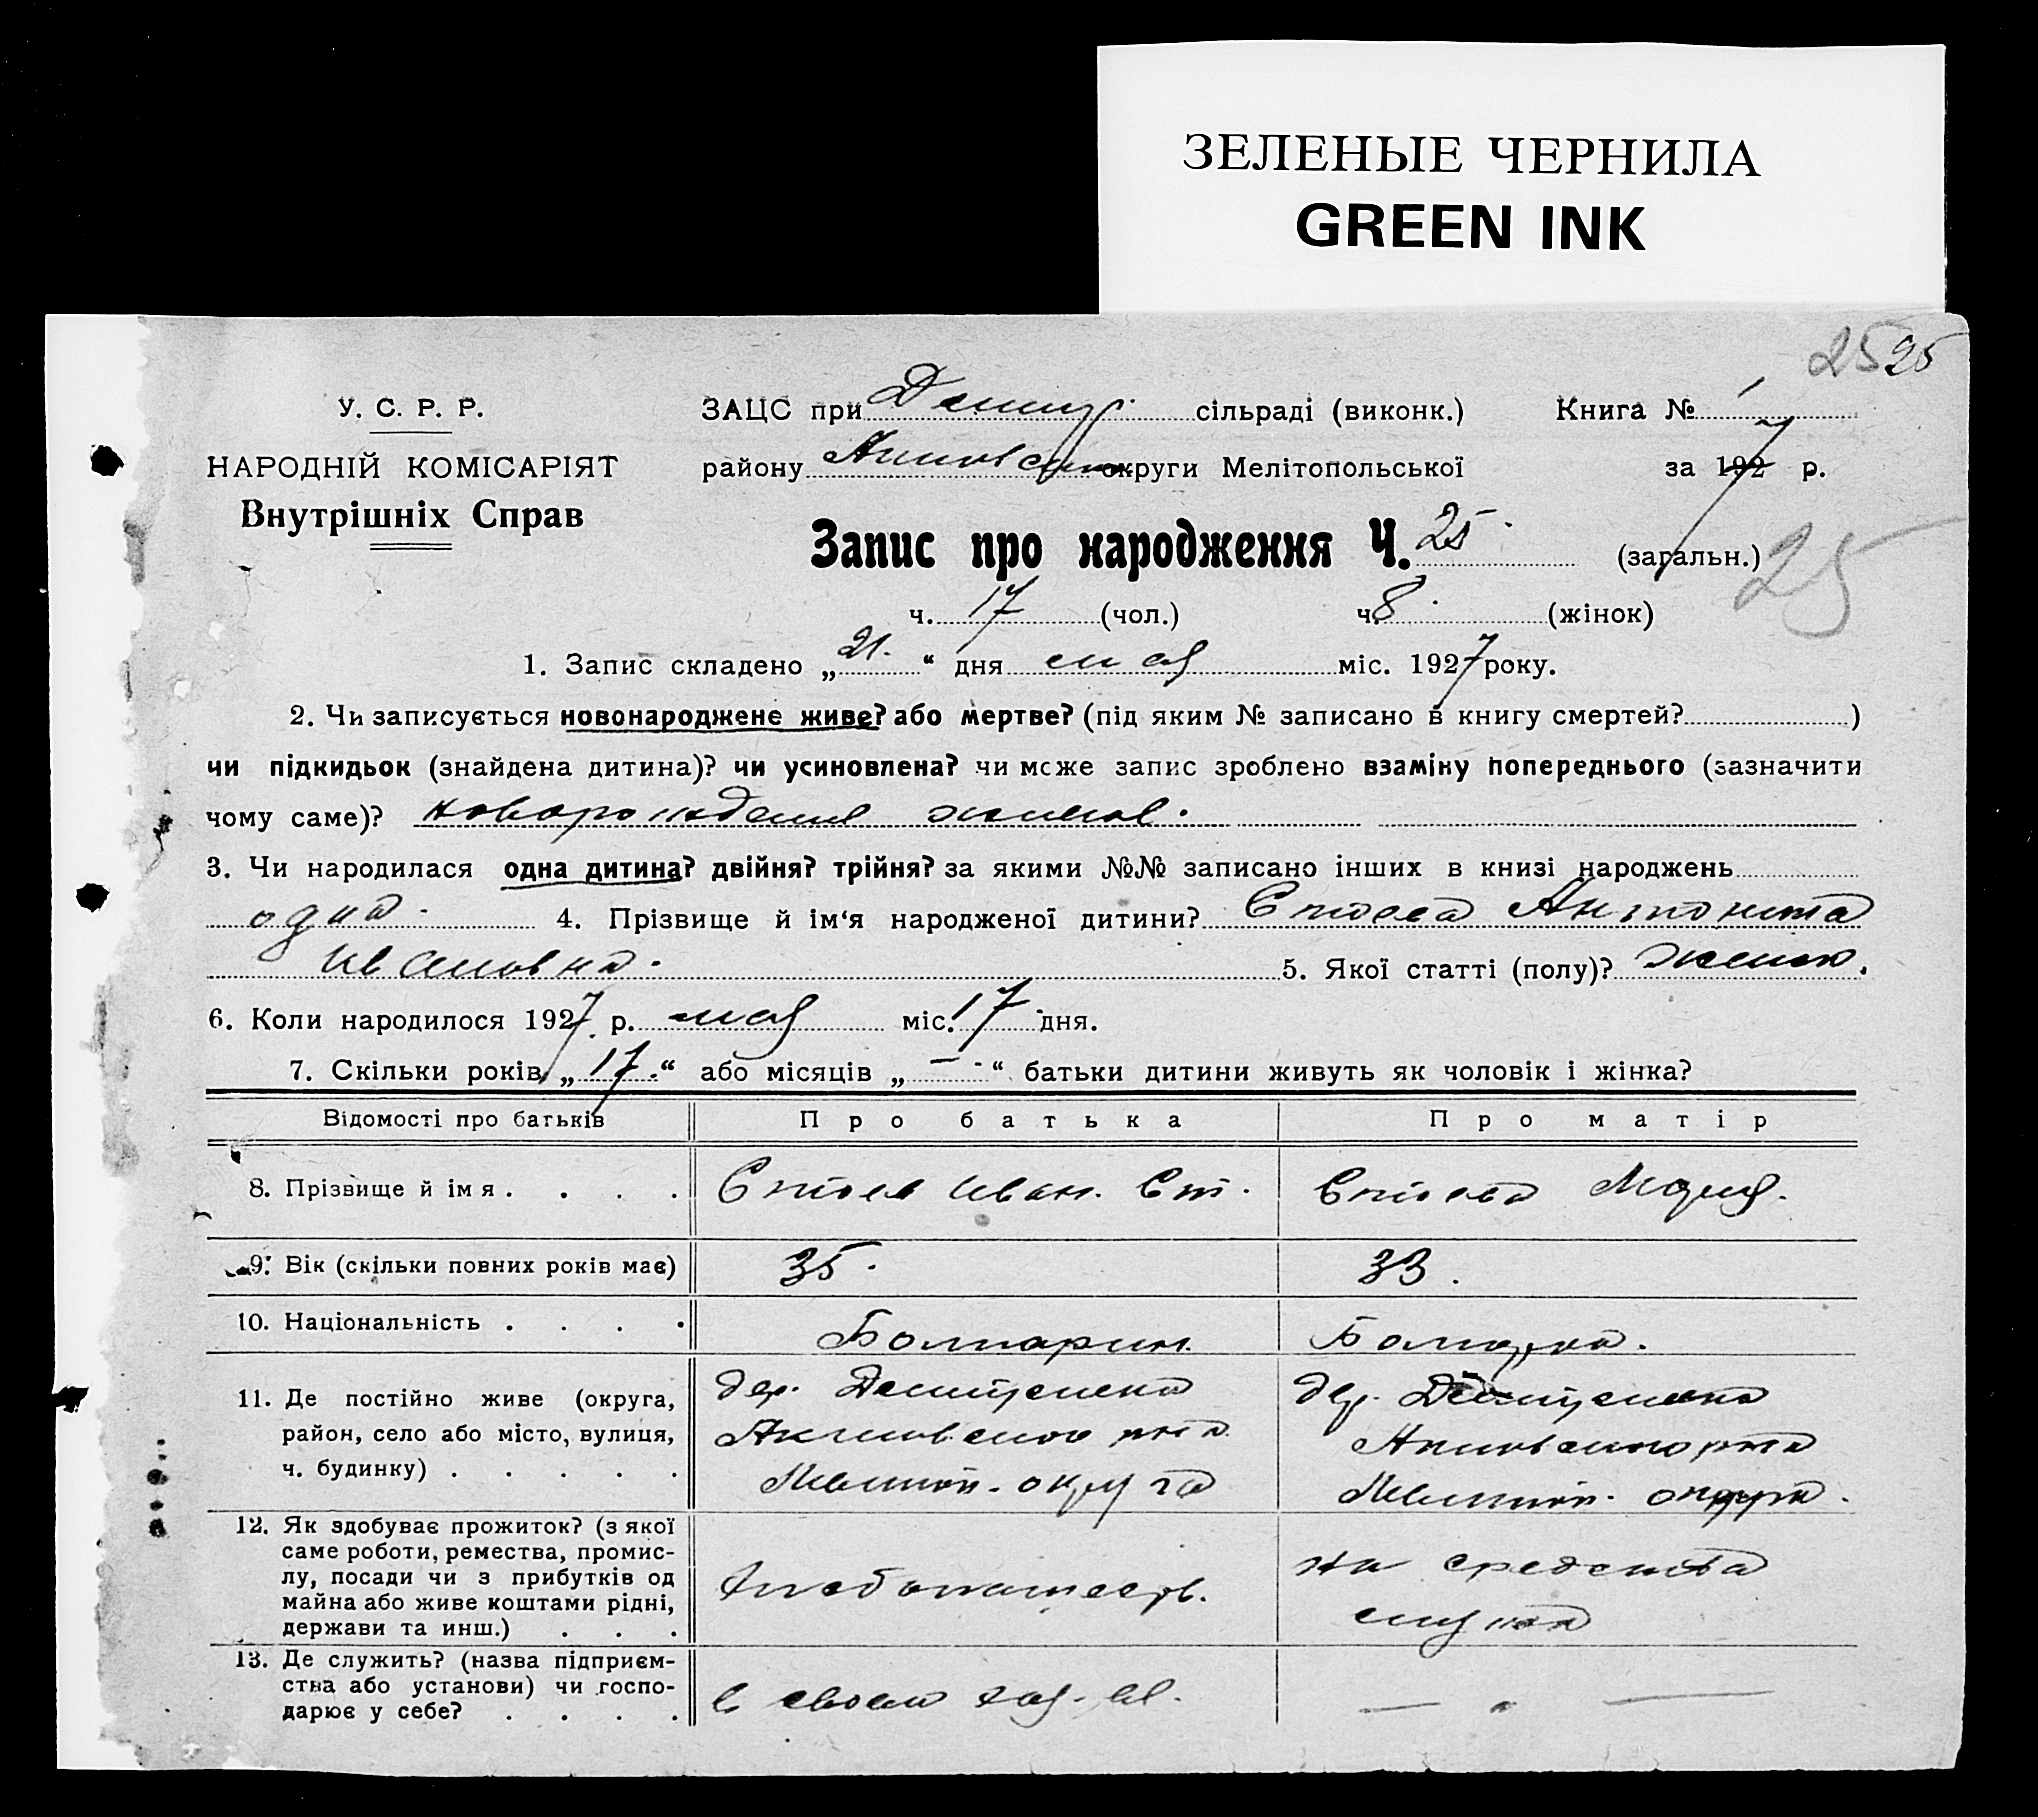 ЗЕЛЕНЫЕ ЧЕРНИЛА
GREEN INK
25 25
У. С. Р. Р.
НАРОДНІЙ КОМІСАРІЯТ
Внутрішніх Справ
ЗАЦС при сільраді (виконк.) Книга № 1
району округи Мелітопольської за 1927 р.
Запис про народження Ч. 25. (загальн.) 25
ч. 17 (чол.) ч. 8. (жінок)
1. Запис складено „21.“ дня мая міс. 1927 року.
2. Чи записується новонароджене живе? або мертве? (під яким № записано в книгу смертей? )
чи підкидьок (знайдена дитина)? чи усиновлена? чи може запис зроблено взаміну попереднього (зазначити
чому саме)?
3. Чи народилася одна дитина? двійня? трійня? за якими №№ записано інших в книзі народжень
одна. 4. Прізвище й ім‘я народженої дитини? Стоева Антонита
Ивановна. 5. Якої статті (полу)? женск.
6. Коли народилося 1927 р. мая міс. 17 дня.
7. Скільки років „17.“ або місяців „—“ батьки дитини живуть як чоловік і жінка?
Відомості про батьків Про батька Про матір
8. Прізвище й імя Стоев Иван. Ст. Стоева Мария.
9. Вік (скільки повних років має) 35. 33.
10. Національність Болгарин. Болгарка.
11. Де постійно живе (округа, район, село або місто, вулиця, ч. будинку)
дер.
Акимовского р-на
Мелитоп. округа
дер.
Акимовского р-на
Мелитоп. округа.
12. Як здобуває прожиток? (з якої саме роботи, ремества, промис-
лу, посади чи з прибутків од
майна або живе коштами рідні,
держави та инш.)
Хлебопашеств.
на средства
мужа
13. Де служить? (назва підприєм-
ства або установи) чи госпо-
дарює у себе?
в своем хоз-ве. — " —